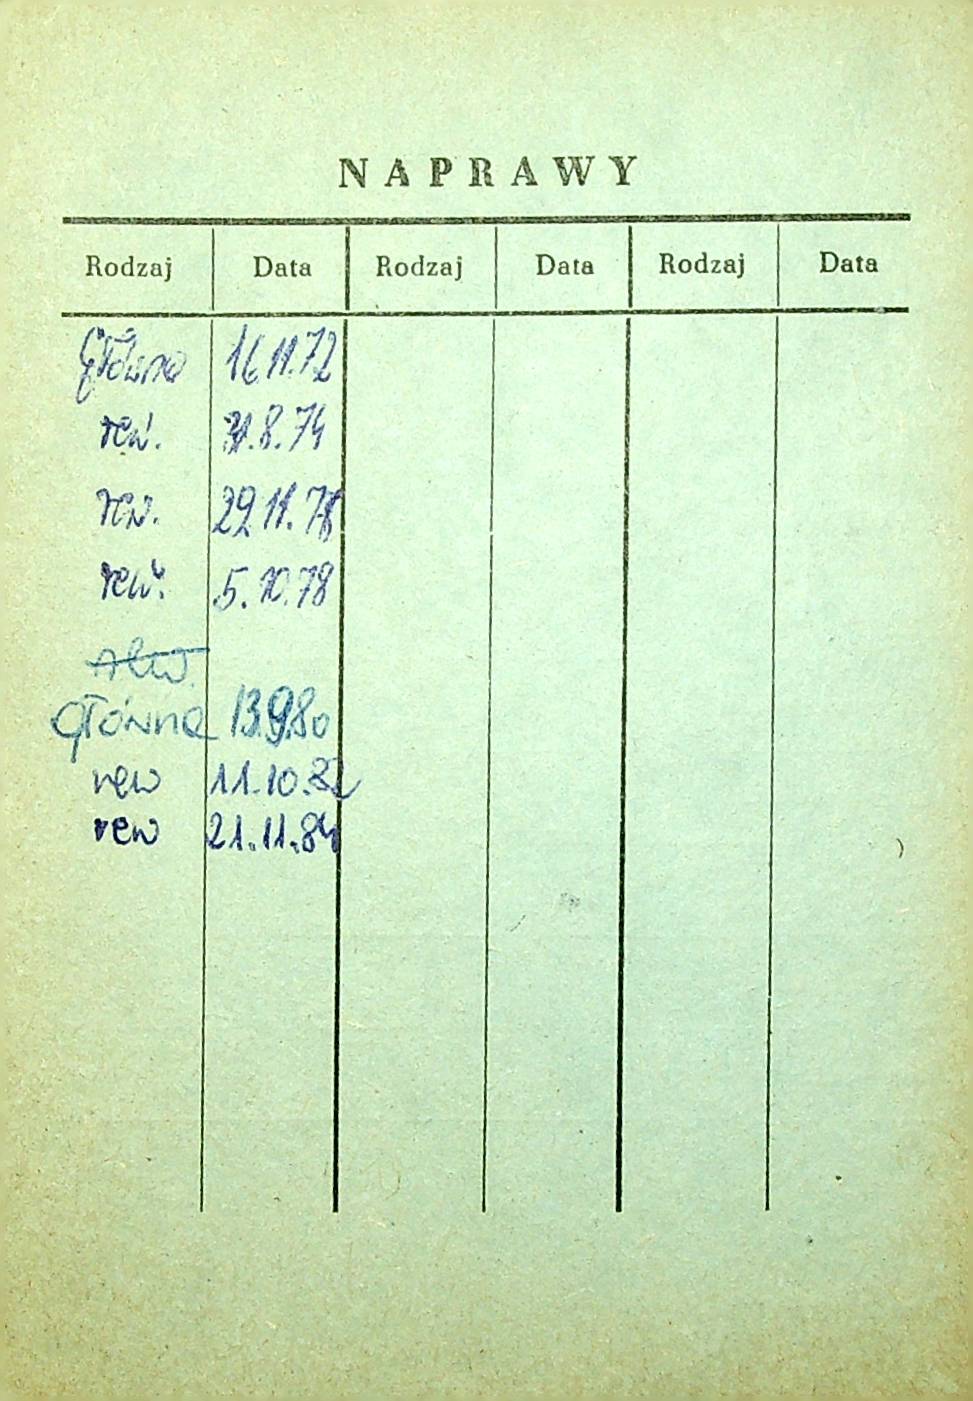 NAPRAWY
Rodzaj Data Rodzaj Data Rodzaj Data
główna 16.11.72
rew. 31.8.74
rew. 29.11.76
rew. 5.10.78
rew.
główna 13.9.80
rew 11.10.82
rew 21.11.84